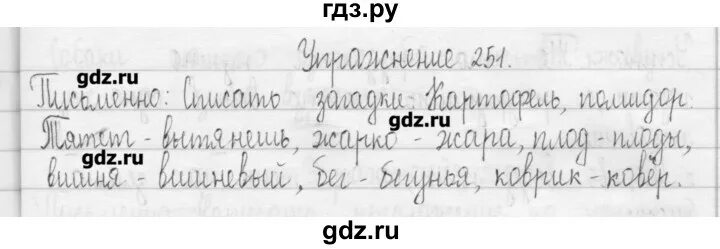 гдз.ру
Упражнение 251.
gdz.ru
gdz.ru
Письменно: Списать загадки. Картофель, помидор.
Тятет - вытянешь, жарко - жара, плод - плоды,
gdz.ru
вишня - вишневый, бег - бегунья, коврик - ковёр.
gdz.ru